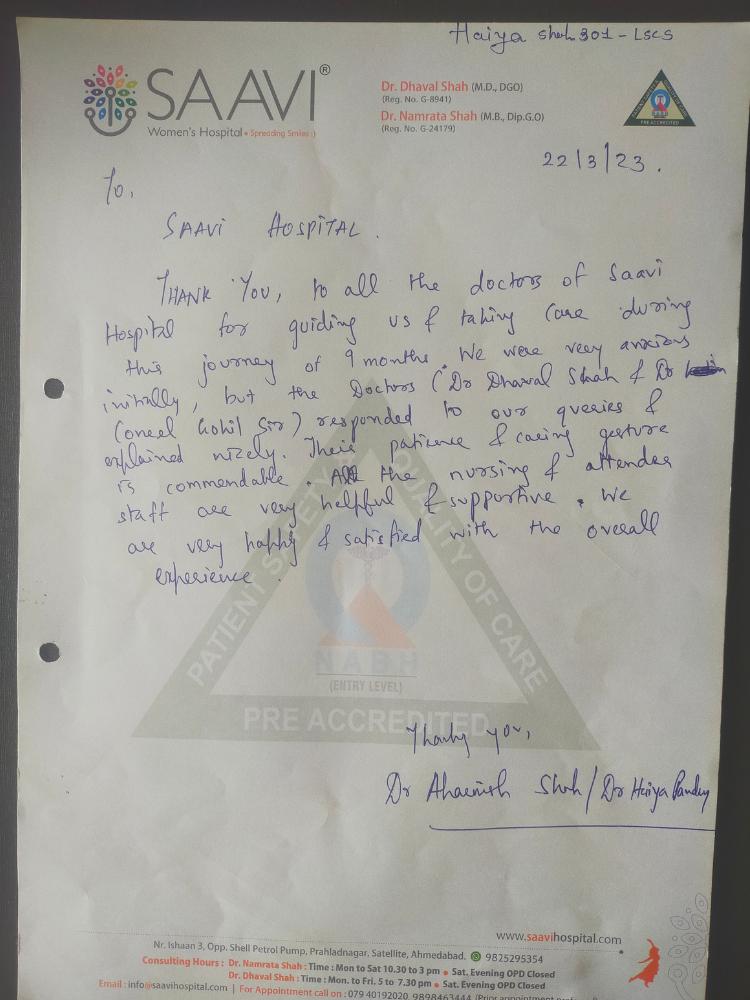 Haiya Shah 301 - LSCS
SAAVI®
Women's Hospital • Spreading Smiles :)
Dr. Dhaval Shah (M.D., DGO)
(Reg. No. G-8941)
Dr. Namrata Shah (M.B., Dip.G.O)
(Reg. No. G-24179)
PRE ACCREDITED
22/3/23.
To,
SAAVI HOSPITAL.
THANK YOU, to all the doctors of Saavi
Hospital for guiding us & taking care during
this journey of 9 months. We were very anxious
initially, but the Doctors (Dr Dhaval Shah & Dr
Coneel Gohil Sir) responded to our queries &
explained nicely. Their patience & caring gesture
is commendable. All the nursing & attender
staff are very helpful & supportive. We
are very happy & satisfied with the overall
experience.
PATIENT SAFETY QUALITY OF CARE
NABH
(ENTRY LEVEL)
PRE ACCREDITED
Thank you,
Dr Shah / Dr Haiya Pandey
www.saavihospital.com
Nr. Ishaan 3, Opp. Shell Petrol Pump, Prahladnagar, Satellite, Ahmedabad. 9825295354
Consulting Hours : Dr. Namrata Shah : Time : Mon to Sat 10.30 to 3 pm • Sat. Evening OPD Closed
Dr. Dhaval Shah : Time : Mon. to Fri. 5 to 7.30 pm • Sat. Evening OPD Closed
Email : info@saavihospital.com | For Appointment call on : 079 40192020, 9898463444 (Prior appointment